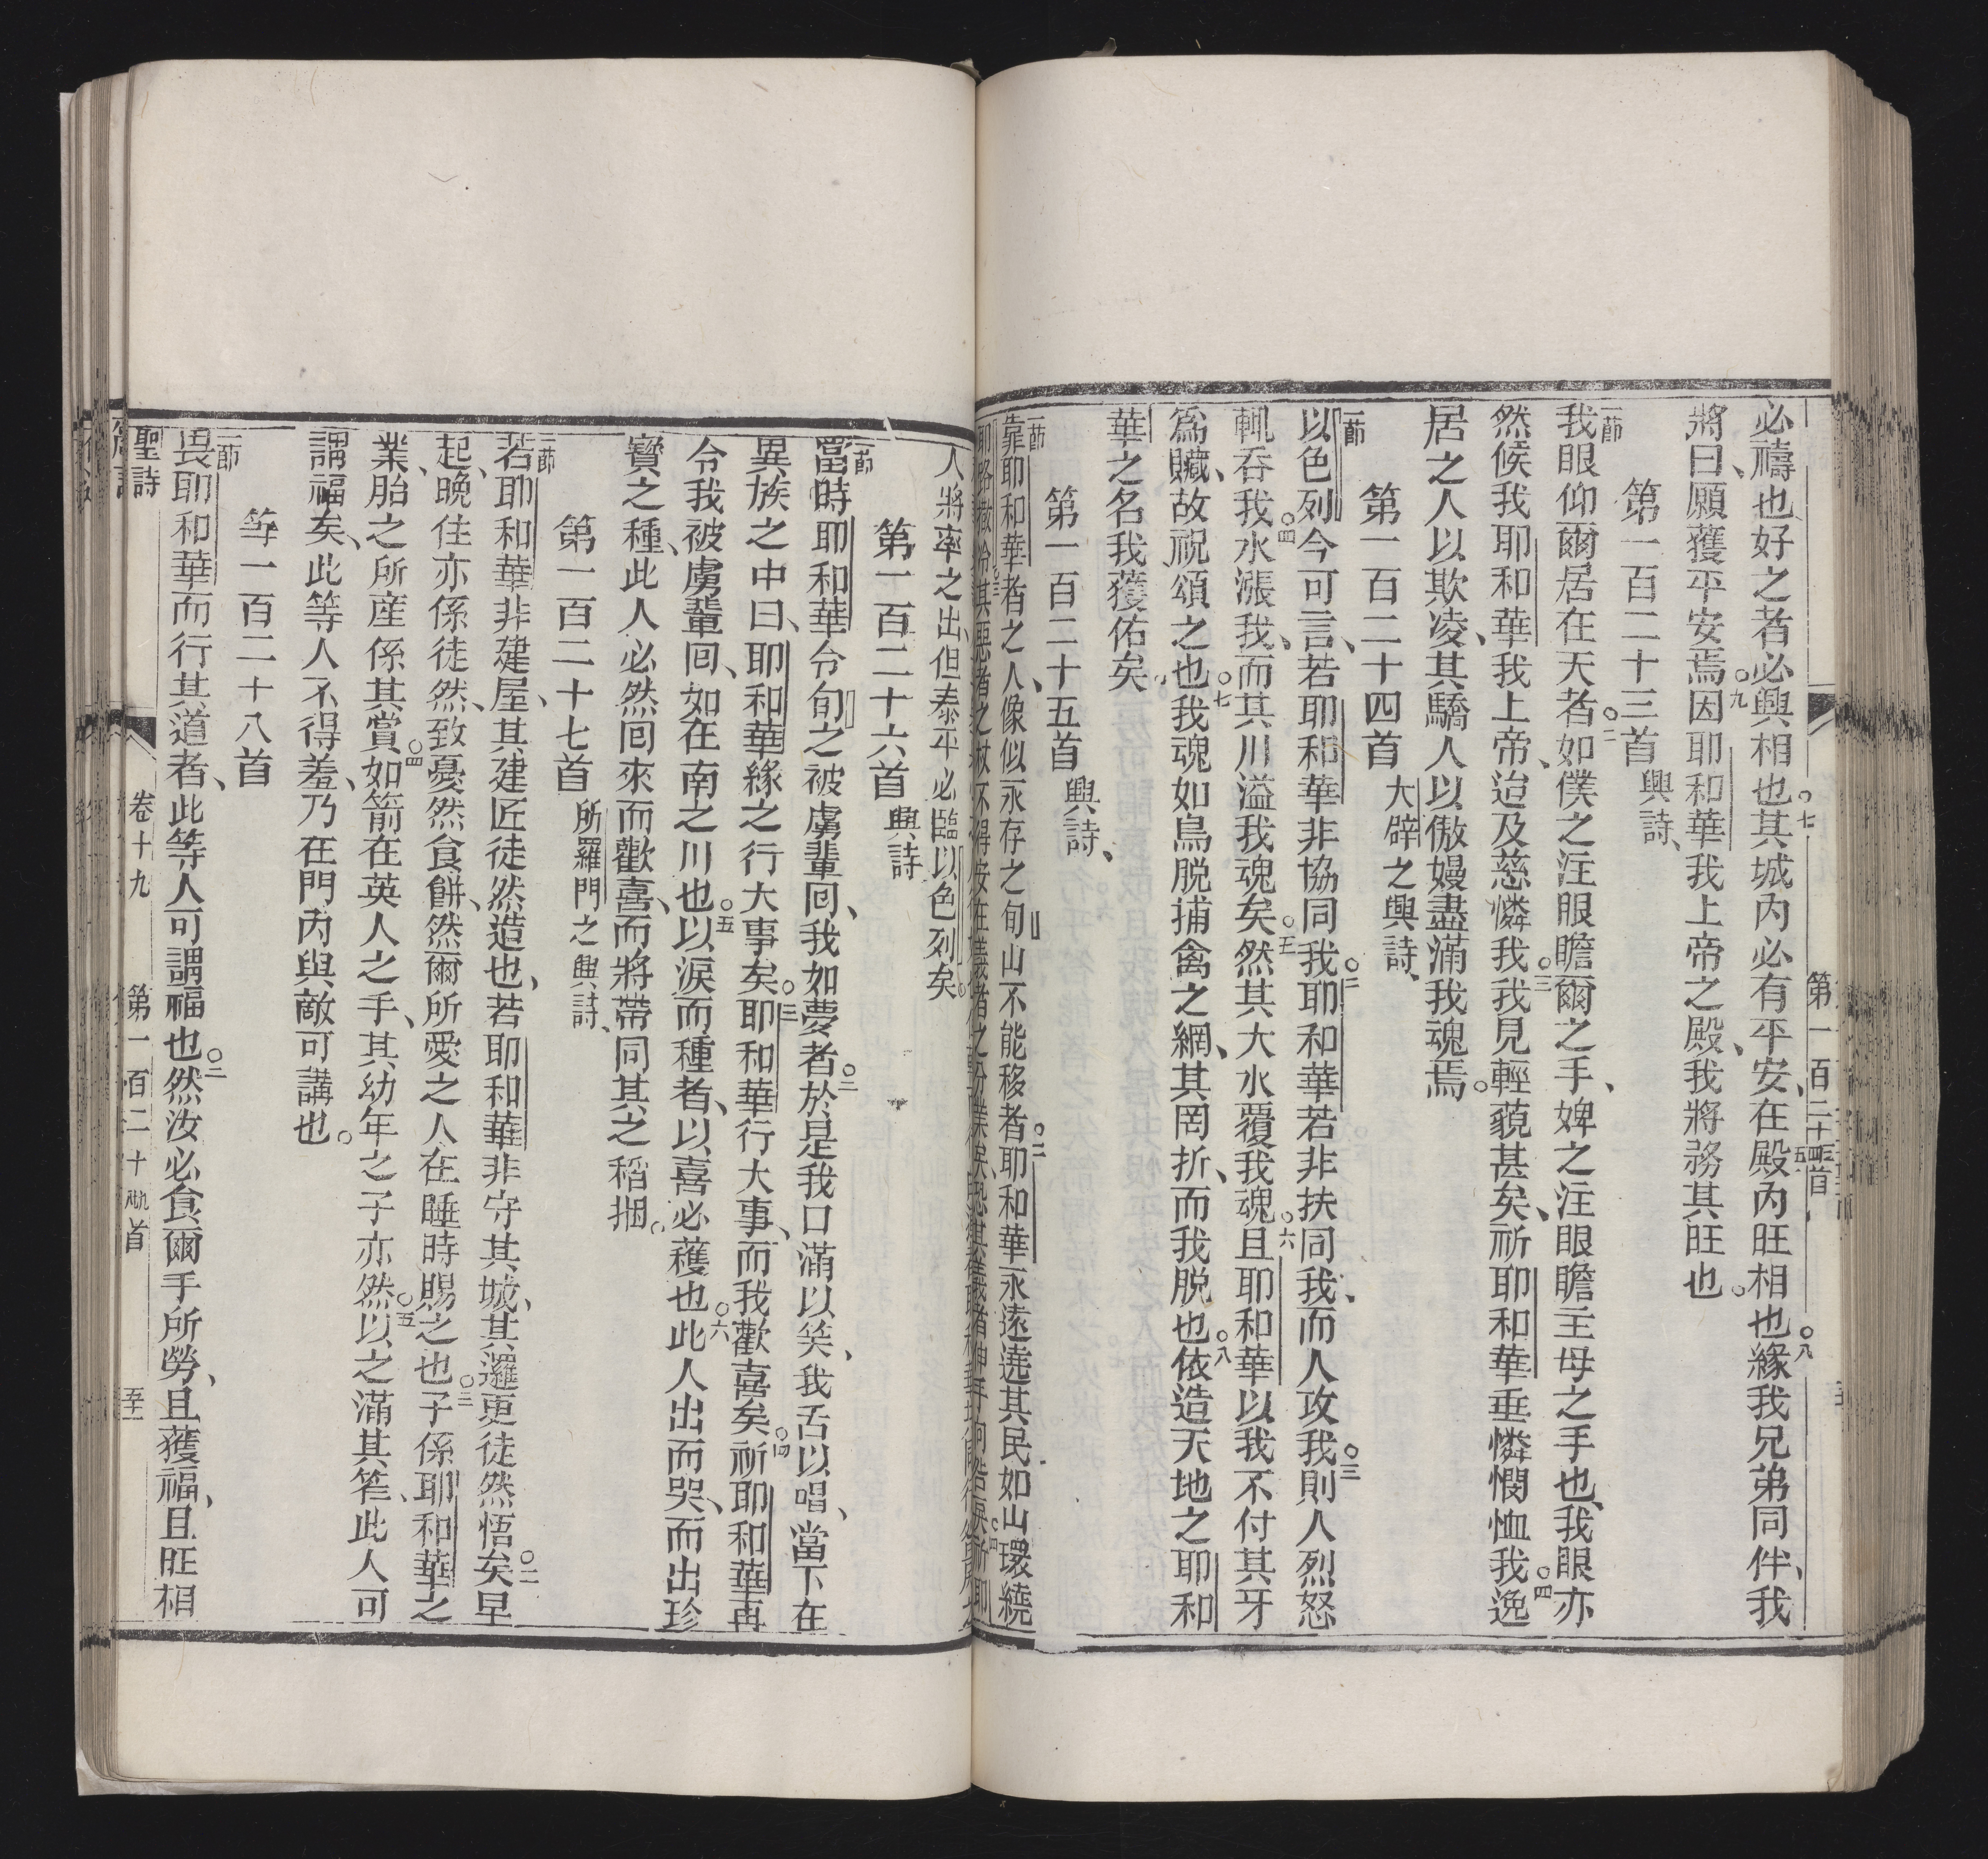 必禱也好之者必興相也○七其城內必有平安、在殿內旺相也○八緣我兄弟同伴、我
將曰、願獲平安焉○九因耶和華我上帝之殿、我將務其旺也。
第一百二十三首 興詩、
一節我眼仰爾居在天者○二如僕之注眼瞻爾之手、婢之注眼瞻主母之手也、我眼亦
然候我耶和華我上帝、迨及慈憐我○三我見輕藐甚矣、祈耶和華垂憐憫恤我○四我魂
居之人以欺凌、其驕人以傲嫚盡滿我魂焉。
第一百二十四首 大辟之興詩、
一節以色列今可言、若耶和華非協同我○二耶和華若非扶同我、而人攻我○三則人烈怒
輒吞我○四水漲我、而其川溢我魂矣○五然其大水覆我魂○六且耶和華以我不付其牙
為贓、故祝頌之也○七我魂如鳥脱捕禽之網、其罔折、而我脱也○八依造天地之耶和
華之名我獲佑矣
第一百二十五首 興詩、
一節靠耶和華者之人、像似永存之旬山不能移者○二耶和華永遠遶其民如山環繞
人將率之出、但泰平必臨以色列矣。
第一百二十六首 興詩
一節當時耶和華令旬之被虜輩回、我如夢者○二於是我口滿以笑、我舌以唱、當下在
異族之中曰、耶和華緣之行大事矣○三耶和華行大事、而我歡喜矣○四祈耶和華再
令我被虜輩回、如在南之川也○五以淚而種者、以喜必穫也○六此人出而哭、而出珍
寶之種、此人必然回來而歡喜、而將帶同其之稻捆。
第一百二十七首 所羅門之興詩、
一節若耶和華非建屋、其建匠徒然造也、若耶和華非守其城、其邏更徒然悟矣○二早
起、晚住亦係徒然、致憂然食餅、然爾所愛之人在睡時賜之也○三子係耶和華之
業、胎之所産係其賞○四如箭在英人之手、其幼年之子亦然○五以之滿其箙、此人可
謂福矣、此等人不得羞、乃在門內與敵可講也。
第一百二十八首
一節畏耶和華而行其道者、此等人可謂福也○二然汝必食爾手所勞、且獲福、且旺相
聖詩 卷十九 第一百二十 首